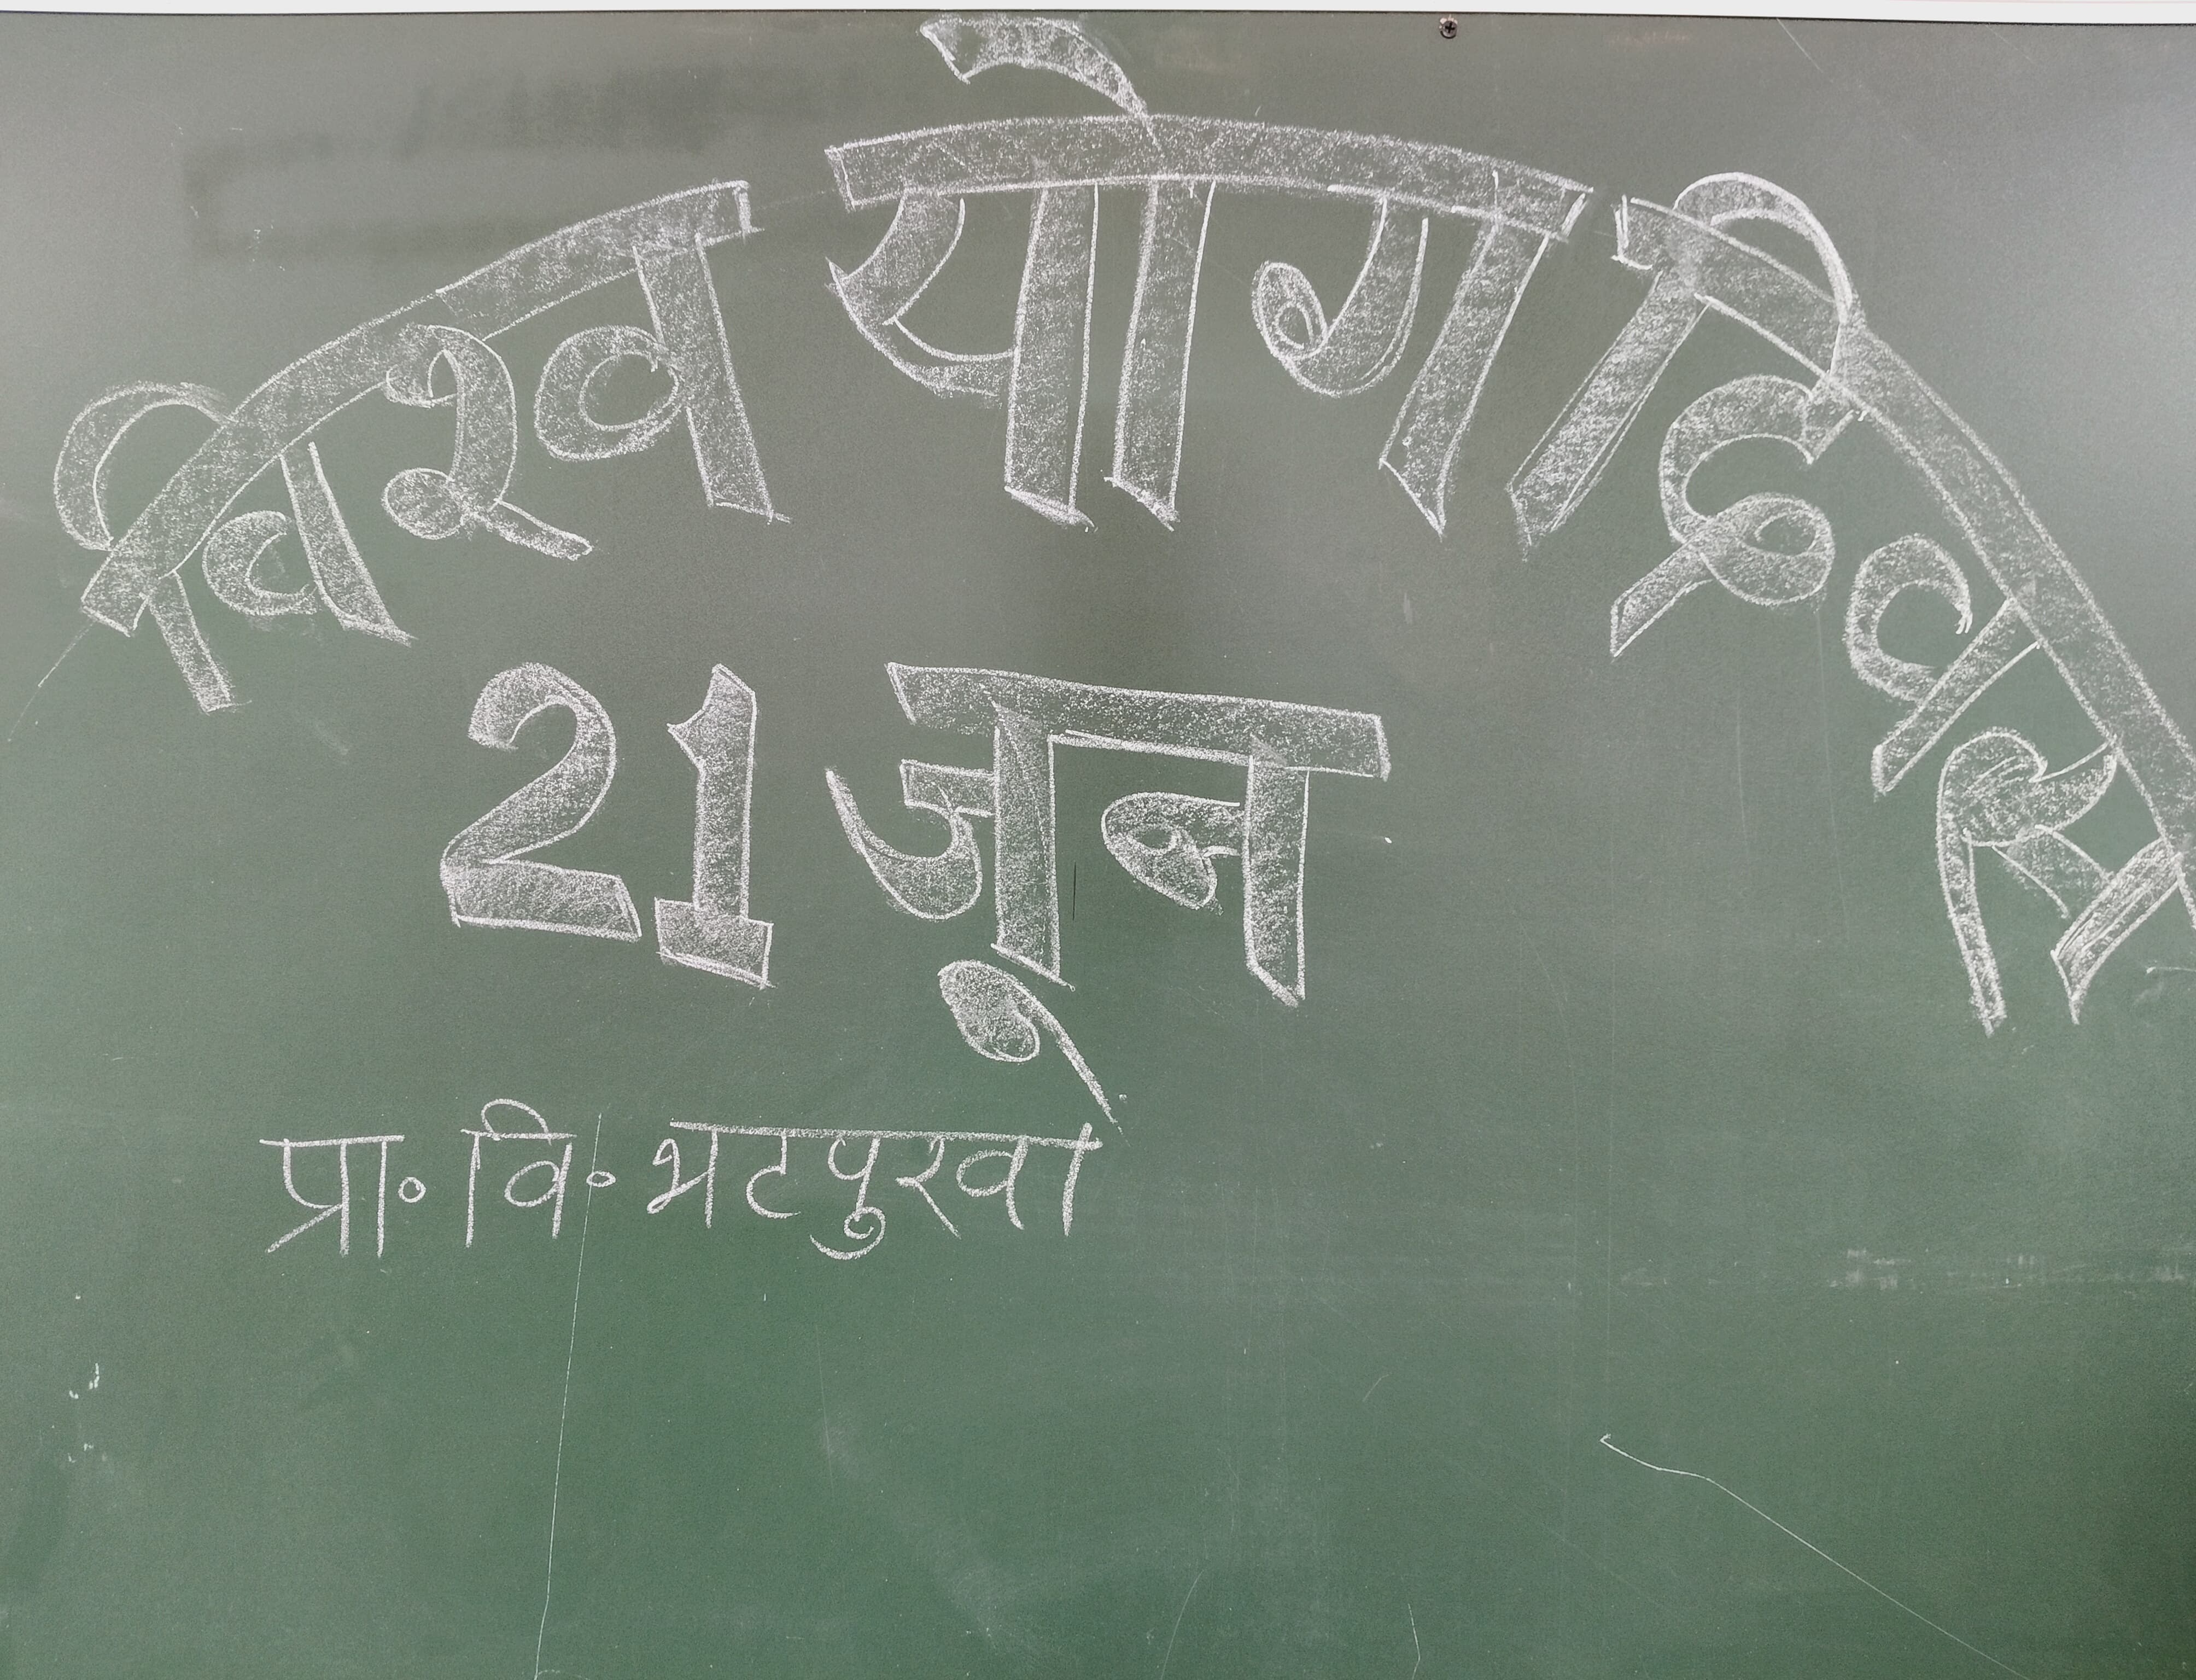 विश्व योग दिवस
21 जून
प्रा॰ वि॰ भटपुरवा